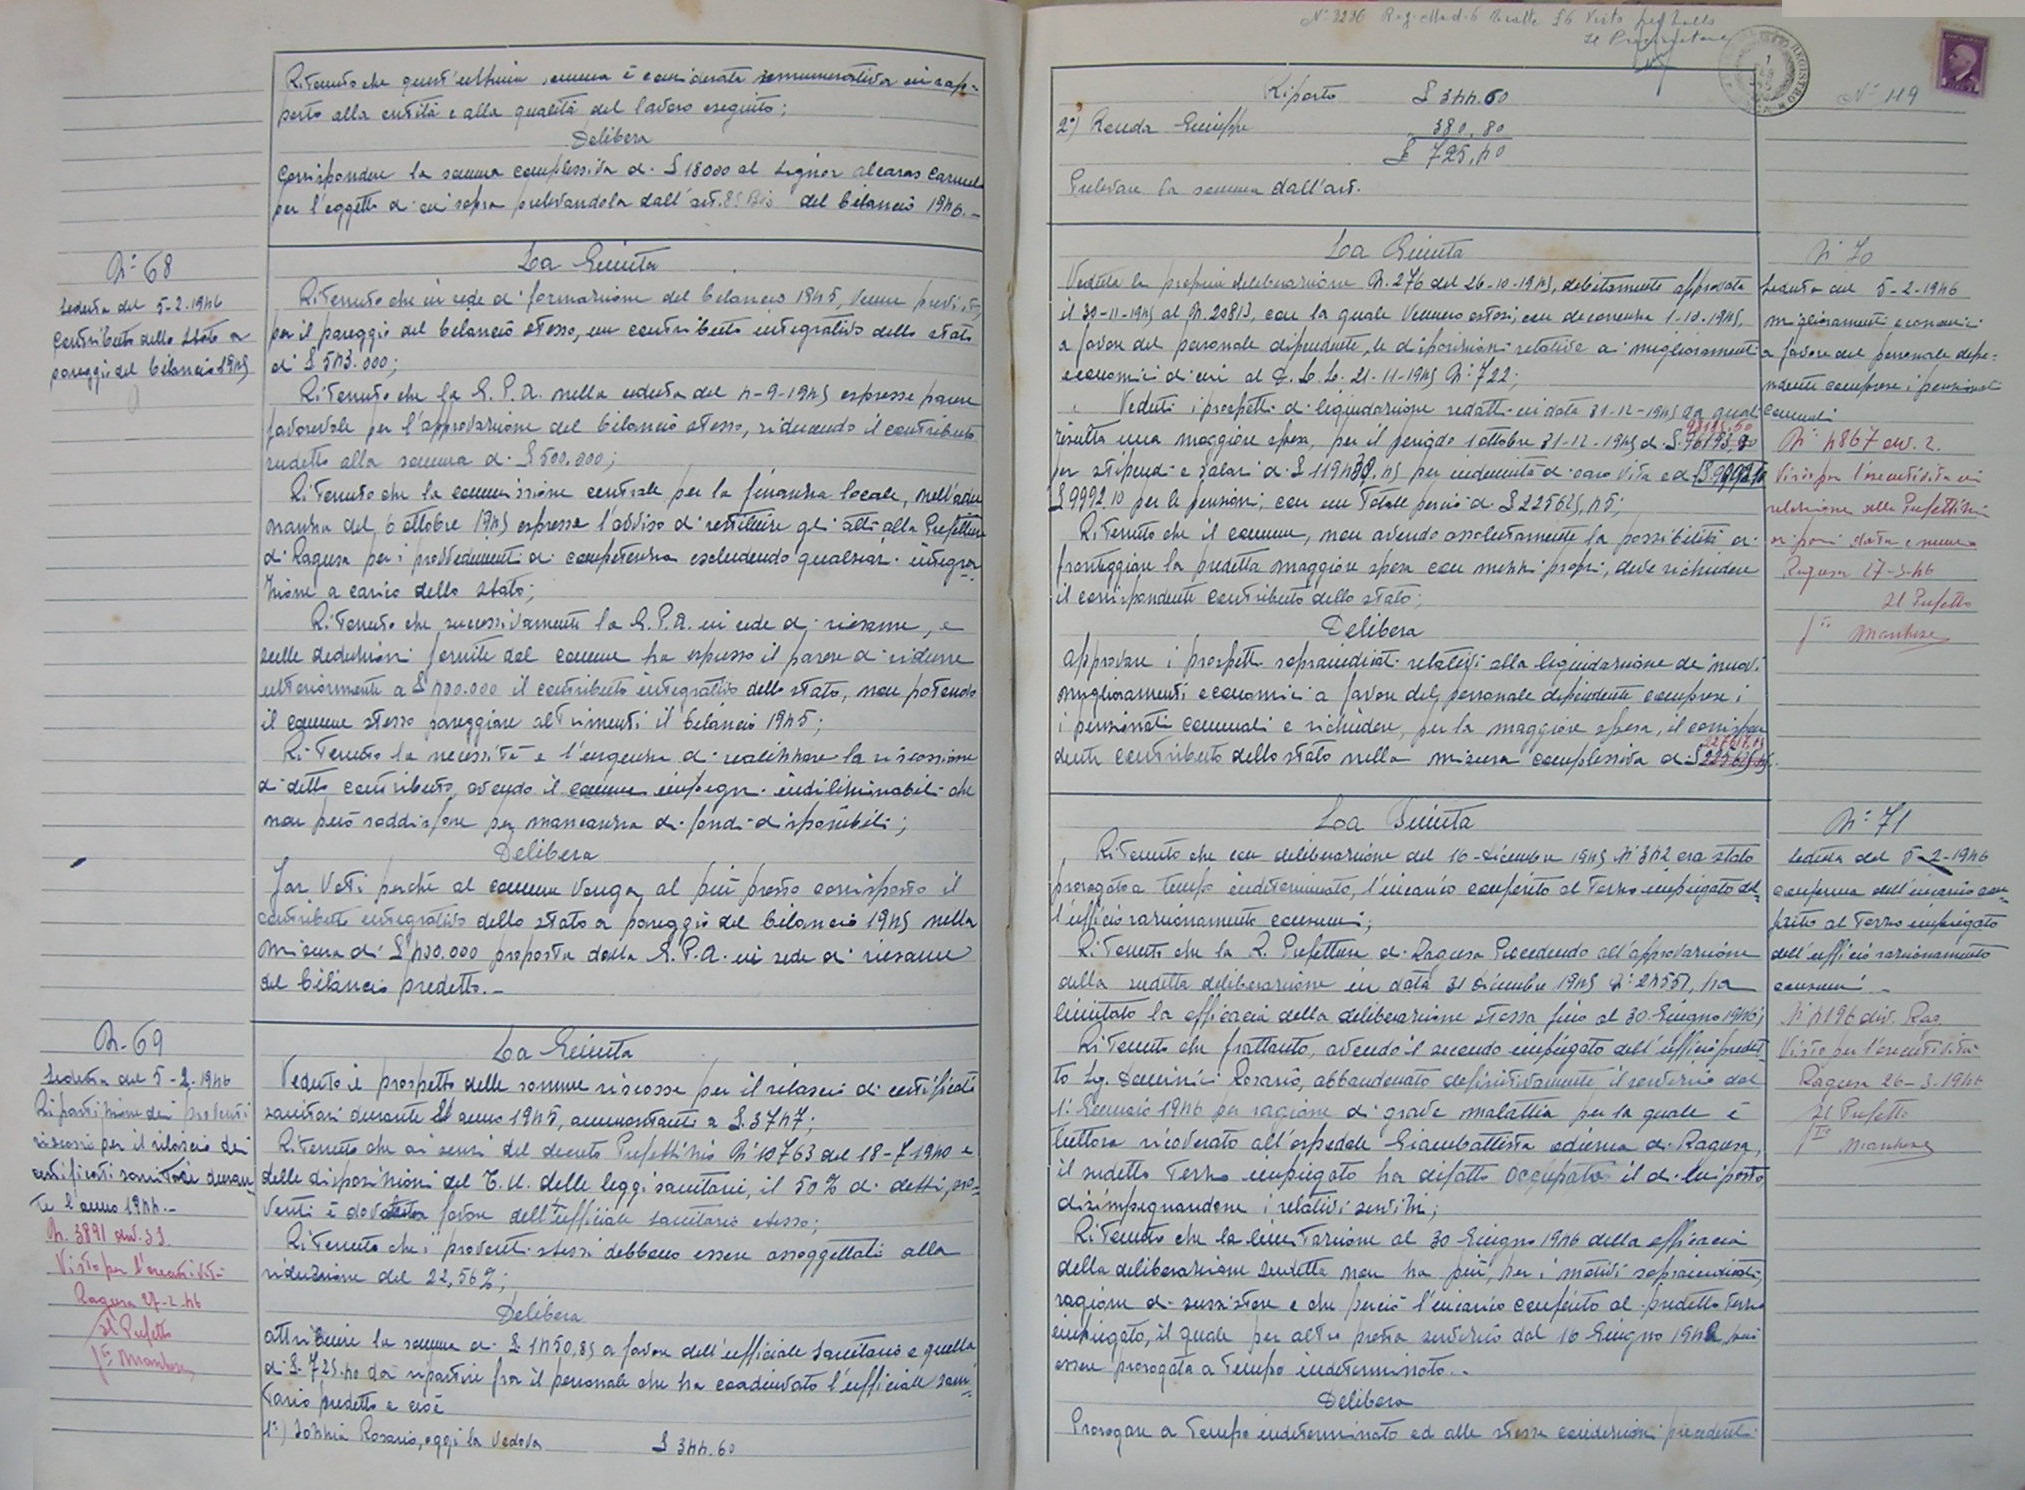 Ritenuto che quest'ultima somma è considerata remunerativa in rap=
porto alla entità e alla qualità del lavoro eseguito;
Delibera
Corrispondere la somma complessiva di £ 18000 al Signor Alcaras Carmelo
per l'oggetto di cui sopra prelevandola dall'art. del bilancio 1946.-
N° 68
Seduta del 5-2-1946
Contributo dello Stato a
pareggio del bilancio 1945
La Giunta
Ritenuto che in sede di formazione del bilancio 1945, venne previsto,
per il pareggio del bilancio stesso, un contributo integrativo dello stato
di £ 543.000;
Ritenuto che la G.P.A. nella seduta del 4-9-1945 espresse parere
favorevole per l'approvazione del bilancio stesso, riducendo il contributo
sudetto alla somma di £ 500.000;
Ritenuto che la commissione centrale per la finanza locale, nell'adu
nanza del 6 ottobre 1945 espresse l'avviso di restituire gli atti alla Prefettura
di Ragusa per i provvedimenti di competenza escludendo qualsiasi integra
zione a carico dello Stato;
Ritenuto che successivamente la G.P.A. in sede di riesame, e
sulle deduzioni fornite dal comune ha espresso il parere di ridurre
ulteriormente a £ 400.000 il contributo integrativo dello stato, non potendo
il comune stesso pareggiare altrimenti il bilancio 1945;
Ritenuto la necessità e l'urgenza di realizzare la riscossione
di detto contributo, avendo il comune impegni indilazionabili che
non può soddisfare per mancanza di fondi disponibili;
Delibera
Far voti perchè al comune venga al più presto corrisposto il
contributo integrativo dello stato a pareggio del bilancio 1945 nella
misura di £ 400.000 proposta dalla G.P.A. in sede di riesame
del bilancio predetto.-
N. 69
Seduta del 5-2-1946
Ripartizione dei proventi
riscossi per il rilascio dei
certificati sanitari duran=
te l'anno 1944.-
N. 3891 div. 31
Visto per l'esecutività
Ragusa 27-2-46
Il Prefetto
La Giunta
Veduto il prospetto delle somme riscosse per il rilascio di certificati
sanitari durante anno 1945, ammontanti a £. 3747;
Ritenuto che ai sensi del decreto Prefettizio N° 10763 del 18-7-1940 e
delle disposizioni del T.U. delle leggi sanitarie, il 50% di detti pro=
venti è favore dell'ufficiale sanitario stesso;
Ritenuto che i proventi stessi debbono essere assoggettati alla
riduzione del 22,56%;
Delibera
Attribuire la somma di £ 1450,85 a favore dell'ufficiale sanitario e quella
di £. 725.40 da ripartire fra il personale che ha coadiuvato l'ufficiale sani=
tario predetto e cioè
1°) Rosario, oggi la vedova £ 344.60
N° 3236 Visto
Il Procuratore
REGISTRO
N° 119
Riporto £ 344.60
2°) Renda Giuseppe 380.80
£ 725,40
Prelevare la somma dall'art.
La Giunta
Veduta la propria deliberazione N. 276 del 26-10-1945, debitamente approvata
il 30-11-1945 al N. 20813, con la quale vennero estesi, con decorrenza 1-10-1945,
a favore del personale dipendente, le disposizioni relative ai miglioramenti
economici di cui al D.L.L. 21-11-1945 N° 722;
Veduti i prospetti di liquidazione redatti in data 31-12-1945 da quali
risulta una maggiore spesa, per il periodo 1 ottobre 31-12-1945 di £.
per stipendi e salari di £ per indennità di caro vita e di
£ 9992.10 per le pensioni, con un totale perciò di £ 225625,45;
Ritenuto che il comune, non avendo assolutamente la possibilità di
fronteggiare la predetta maggiore spesa con mezzi propri, deve richiedere
il corrispondente contributo dello stato;
Delibera
Approvare i prospetti sopraindicati relativi alla liquidazione dei nuovi
miglioramenti economici a favore del personale dipendente compresi i
i pensionati comunali e richiedere, per la maggiore spesa, il corrispon
dente contributo dello stato nella misura complessiva di £
N° 70
Seduta del 5-2-1946
miglioramenti economici
a favore del personale dipe=
ndente compresi i pensionati
comunali
N° 4867 div. 2.
Visto per l'esecutività in
relazione alla Prefettizia
di pari data e numero
Ragusa 27-3-46
Il Prefetto
La Giunta
Ritenuto che con deliberazione del 16 Dicembre 1945 N° 342 era stato
prorogato a tempo indeterminato, l'incarico conferito al terzo impiegato del=
l'ufficio razionamento consumi;
Ritenuto che la R. Prefettura di Ragusa procedendo all'approvazione
della sudetta deliberazione in data 31 Dicembre 1945 N° 24551, ha
limitato la efficacia della deliberazione stessa fino al 30 Giugno 1946;
Ritenuto che frattanto, avendo il secondo impiegato dell'ufficio predet=
to Sig. Rosario, abbandonato definitivamente il servizio dal
1° Gennaio 1946 per ragione di grave malattia per la quale è
tuttora ricoverato all'ospedale Giambattista Odierna di Ragusa,
il sudetto terzo impiegato ha difatto occupato il di lui posto
disimpegnandone i relativi servizi;
Ritenuto che la limitazione al 30 Giugno 1946 della efficacia
della deliberazione sudetta non ha più, per i motivi sopraindicati,
ragione di sussistere e che perciò l'incarico conferito al predetto terzo
impiegato, il quale per altro presta servizio dal 16 Giugno 1942 può
essere prorogata a tempo indeterminato.-
Delibera
Prorogare a tempo indeterminato ed alle stesse condizioni precedenti
N° 71
Seduta del 5-2-1946
conferma dell'incarico con=
ferito al terzo impiegato
dell'ufficio razionamento
consumi.-
N° 4196 div. Rag.
Visto per l'esecutività
Ragusa 26-3-1946
Il Prefetto